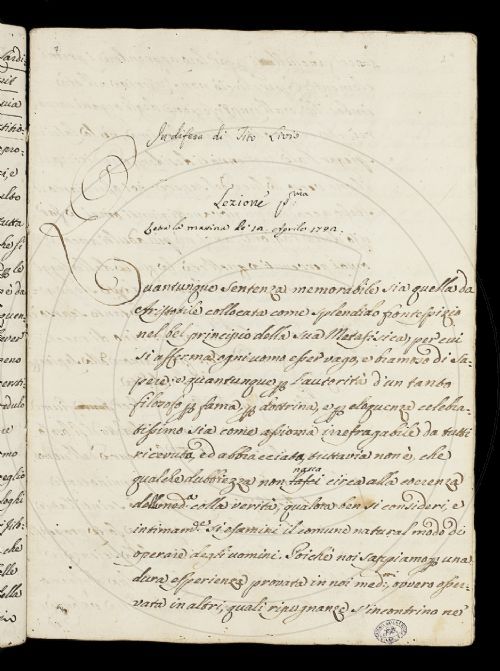 In difesa di Tito Livio
Lezione p.ma
Letta la mattina de 12. Aprile
Quantunque sentenza memorabile sia quella da
Aristotile collocata come splendido frontespizio
nel bel principio della sua Metafisica, per cui
si afferma ogni uomo esser vago, e bramoso di sa-
pere, e quantunque p l'autorità d'un tanto
filosofo p fama, p dottrina, e p eloquenza celebra-
tissimo sia come assioma irrefragabile da tutti
ricevuto, ed abbracciato, tuttavia non è, che
qualche dubbiezza non nasca circa alla coerenza
della med.a colla verità, qualora ben si consideri, e
intimam.te si esamini il comune natural modo di
operare degli uomini. Poichè noi sappiamo p una
dura esperienza provata in noi med.mi, ovvero osser-
vata in altri, quali ripugnanze s'incontrino ne